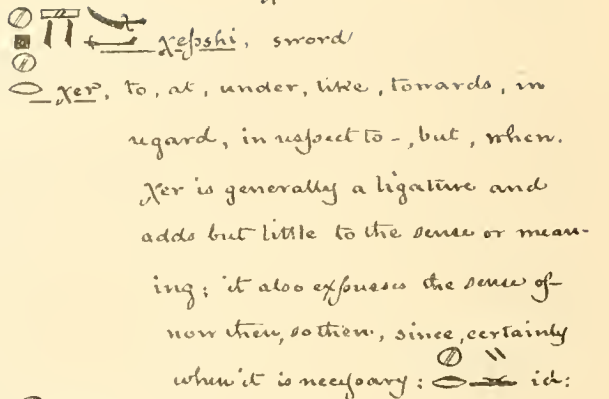 χepshi, sword
χer, to, at, under, like, towards, in
regard, in respect to-, but, when.
χer is generally a ligature and
adds but little to the sense or mean-
ing; it also expresses the sense of
now then, so then, since, certainly
when it is necessary: id: